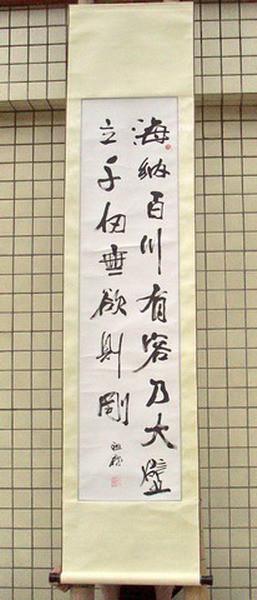 海纳百川有容乃大壁
立千仞無欲则剛